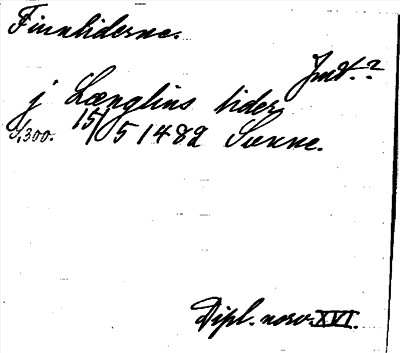 Finnliderne.
Jmt.?
j Længlins lider
S,300. 15/5 1482 Sunne.
Dipl. norv. XVI.